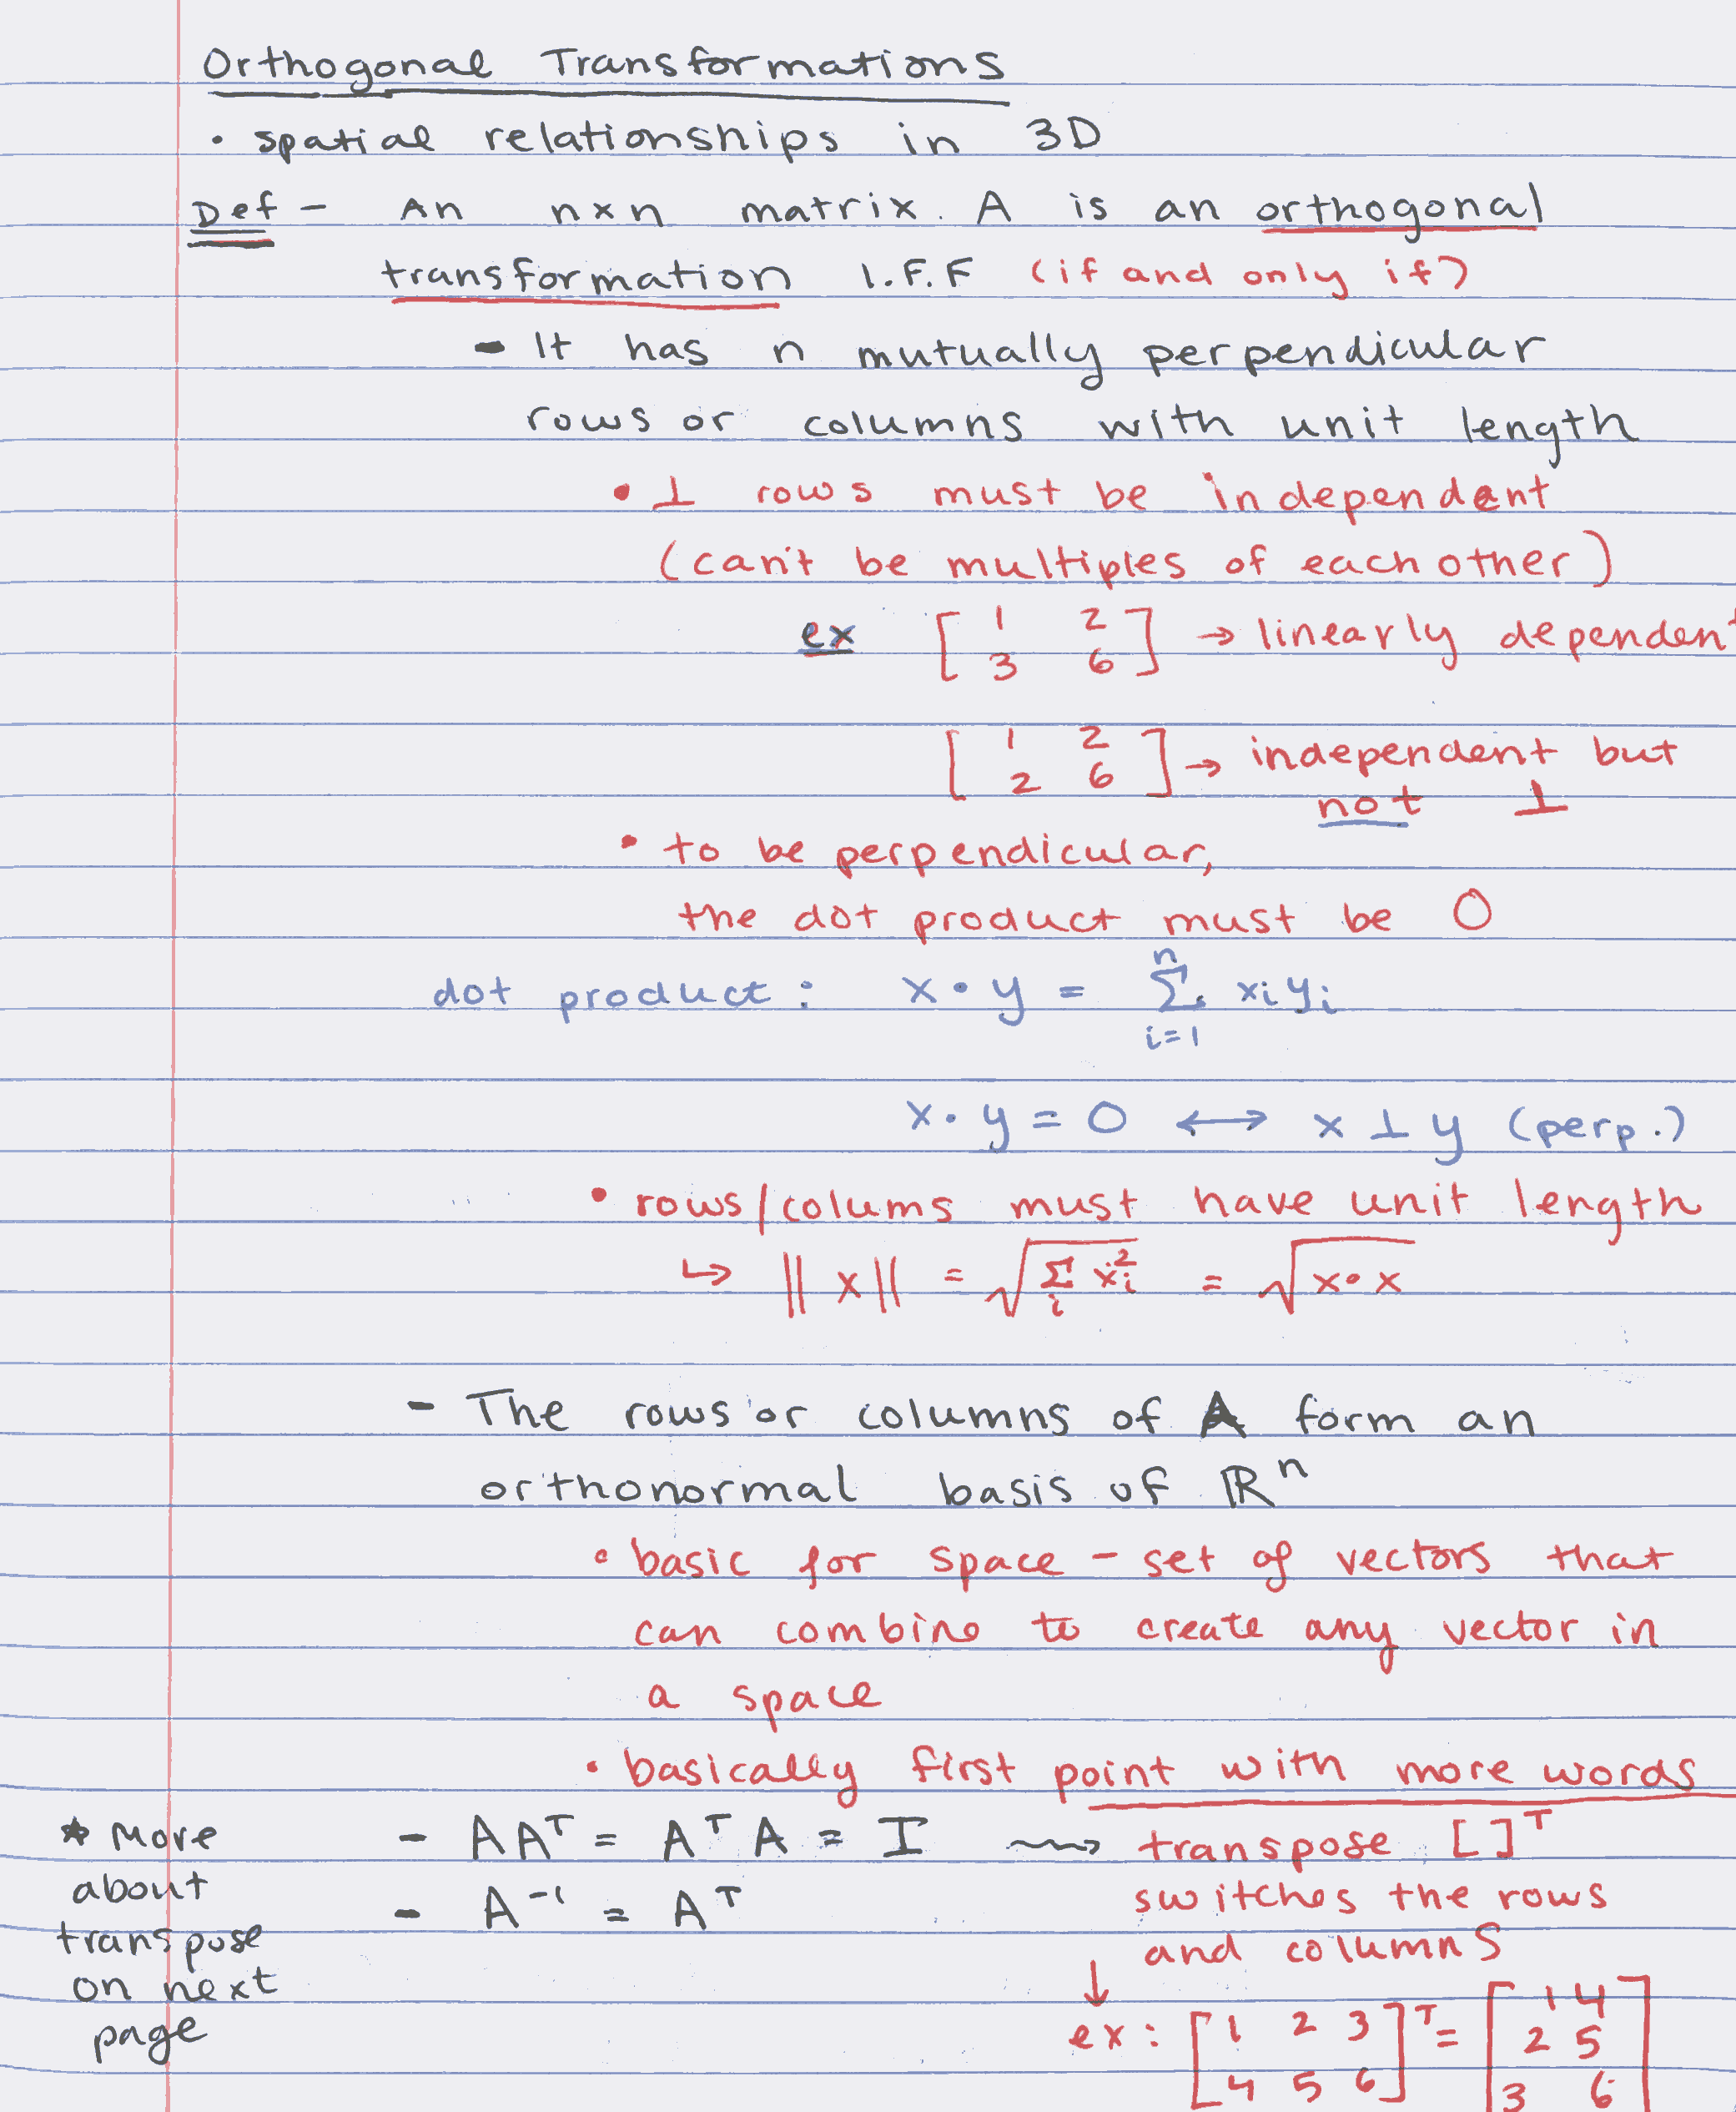 Orthogonal Transformations
• spatial relationships in 3D
Def - An n×n matrix A is an orthogonal
transformation I.F.F (if and only if)
- It has n mutually perpendicular
rows or columns with unit length
• ⊥ rows must be independent
(can't be multiples of each other)
ex [1 2; 3 6] → linearly dependent
[1 2; 2 6] → independent but
not ⊥
• to be perpendicular,
the dot product must be 0
dot product: x • y = Σ_{i=1}^{n} x_i y_i
x • y = 0 ⟷ x ⊥ y (perp.)
• rows/colums must have unit length
↳ ||x|| = √(Σ_i x_i^2) = √(x • x)
- The rows or columns of A form an
orthonormal basis of ℝ^n
• basic for space - set of vectors that
can combine to create any vector in
a space
• basically first point with more words
- AA^T = A^T A = I ⇝ transpose [ ]^T
switches the rows
and columns
- A^-1 = A^T
↓
ex: [1 2 3; 4 5 6]^T = [1 4; 2 5; 3 6]
* More
about
transpose
on next
page